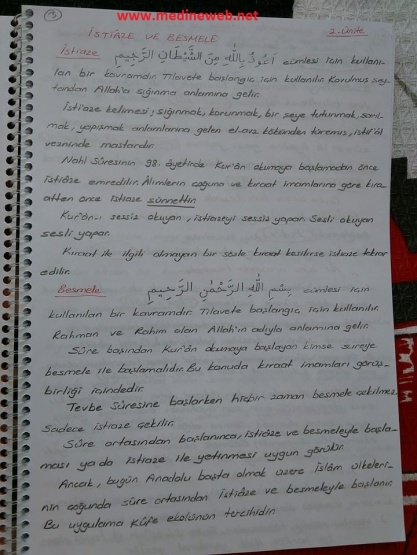 www.medineweb.net
3
İSTİÂZE VE BESMELE
2. Ünite
İstiaze اَعُوذُ بِاللّٰهِ مِنَ الشَّيْطَانِ الرَّجِيمِ cümlesi için kullanı-
lan bir kavramdır. Tilavete başlangıç için kullanılır. Kovulmuş şey-
tandan Allah'a sığınma anlamına gelir.
İstiaze kelimesi; sığınmak, korunmak, bir şeye tutunmak, sarıl-
mak, yapışmak anlamlarına gelen el-avz kökünden türemiş, istif'âl
vezninde mastardır.
Nahl Sûresinin 98. âyetinde Kur'ân okumaya başlamadan önce
istiâze emredilir. Âlimlerin çoğuna ve kıraat imamlarına göre kıra-
atten önce istiaze sünnettir.
Kur'ân-ı sessiz okuyan, istiazeyi sessiz yapar. Sesli okuyan
sesli yapar.
Kıraat ile ilgili olmayan bir sözle kıraat kesilirse istiaze tekrar
edilir.
Besmele بِسْمِ اللّٰهِ الرَّحْمٰنِ الرَّحِيمِ cümlesi için
kullanılan bir kavramdır. Tilavete başlangıç için kullanılır.
Rahman ve Rahim olan Allah'ın adıyla anlamına gelir.
Sûre başından Kur'ân okumaya başlayan kimse sureye
besmele ile başlamalıdır. Bu konuda kıraat imamları görüş-
birliği içindedir.
Tevbe Sûresine başlarken hiçbir zaman besmele çekilmez.
Sadece istiaze çekilir.
Sûre ortasından başlanınca, istiâze ve besmeleyle başla-
ması ya da istiaze ile yetinmesi uygun görülür.
Ancak, bugün Anadolu başta olmak üzere İslâm ülkeleri-
nin çoğunda sûre ortasından istiâze ve besmeleyle başlanır.
Bu uygulama Kûfe ekolünün tercihidir.